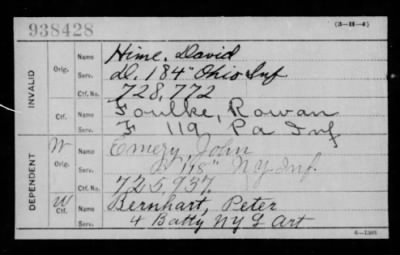 938428
(3-H-4)
INVALID
Orig. Name Hime, David
Serv. D. 184" Ohio Inf
Ctf. No. 728,772
Ctf. Name Foulke, Rowan
Serv. F 119 Pa Inf
DEPENDENT
W Orig. Name Emery, John
Serv. 118" NY Inf.
Ctf. No. 725,937.
W Ctf. Name Bernhart, Peter
Serv. 4 Batty NY L Art